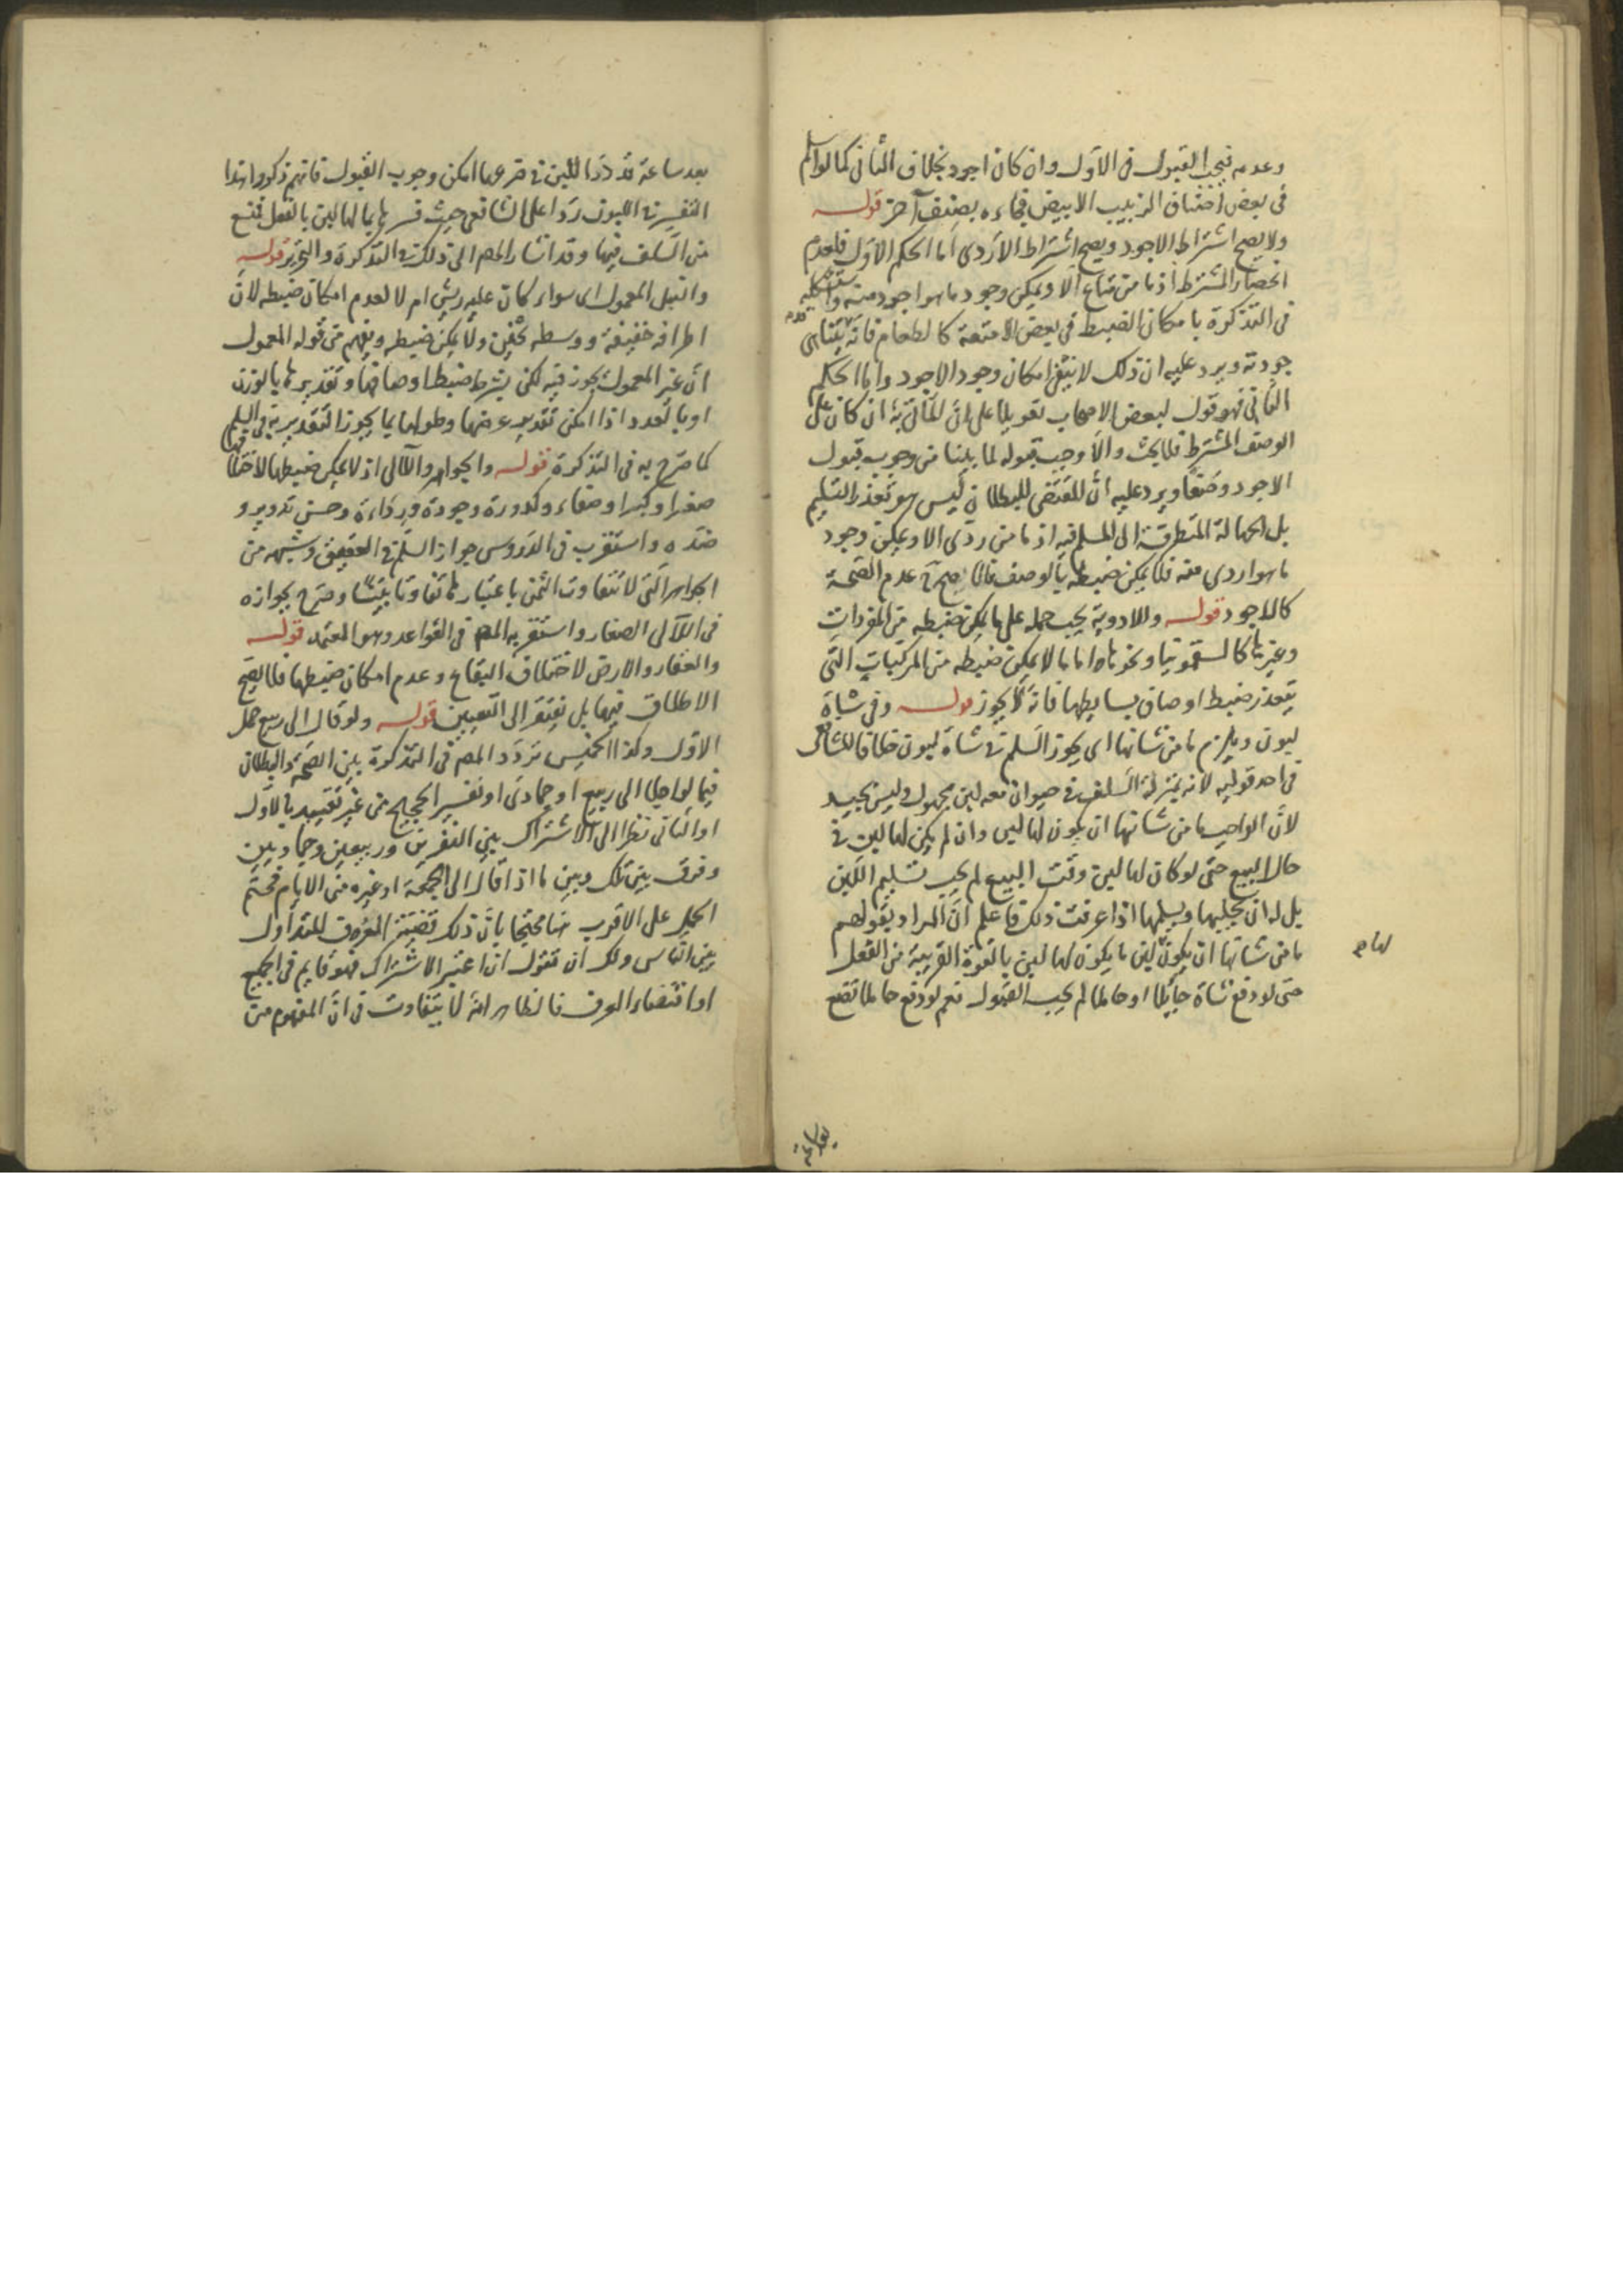 وعدمه فيجب القبول فى الاول وان كان اجود بخلاف الثانى كما لو اسلم
فى بعض اصناف الزبيب الابيض فجاءه بصنف آخر قوله
ولا يصح اشتراط الاجود ويصح اشتراط الاردى اما الحكم الاول فلعدم
انحصار المشترط اذ ما من متاع الا ويمكن وجود ما هو اجود منه واستشكله
فى التذكرة بامكان الضبط فى بعض الامتعة كالطعام فانه يتناهى
جودته ويرد عليه ان ذلك لا ينفى امكان وجود الاجود واما الحكم
الثانى فهو قول لبعض الاصحاب تعويلا على ان المأتى به ان كان على
الوصف المشترط فلا بحث والا وجب قبوله لما بينا من وجوب قبول
الاجود وصفا ويرد عليه ان المقتضى للبطلان ليس هو تعذر التسليم
بل الجهالة المتطرقة الى المسلم فيه اذ ما من ردى الا ويمكن وجود
ما هو اردى منه فلا يمكن ضبطه بالوصف فالاصح عدم الصحة
كالاجود قوله والادوية يجب حمله على ما يمكن ضبطه من المفردات
وغيرها كالسقمونيا ونحوها اما ما لا يمكن ضبطه من المركبات التى
يتعذر ضبط اوصاف بسايطها فانه لا يجوز قوله وفى شاة
لبون ويلزم ما من شانها اى يجوز السلم فى شاة لبون خلافا للشافعى
فى احد قوليه لانه بمنزلة السلف فى حيوان معه لبن مجهول وليس بجيد
لان الواجب ما من شانها ان يكون لها لبن وان لم يكن لها لبن فى
حال البيع حتى لو كان لها لبن وقت البيع لم يجب تسليم اللبن
بل له ان يحلبها ويسلمها اذا عرفت ذلك فاعلم ان المراد بقولهم
ما من شانها ان يكون لبن ما يكون لها لبن بالقوة القريبة من الفعل
لها م
حتى لو دفع شاة حائلا او حاملا لم يجب القبول نعم لو دفع حاملا تضع
بعد ساعة
بعد ساعة قد درا اللبن فى ضرعها امكن وجوب القبول فانهم ذكروا هذا
التفسير فى اللبون ردا على الشافعى حيث فسرها بما لها لبن بالفعل فمنع
من السلف فيها وقد اشار المصم الى ذلك فى التذكرة والتحرير قوله
والنبل المعمول اى سواء كان عليه ريش ام لا لعدم امكان ضبطه لان
اطرافه خفيفة ووسطه ثخين ولا يمكن ضبطه ويفهم من قوله المعمول
ان غير المعمول يجوز فيه لكن يشترط ضبط اوصافها وتقديرها بالوزن
او بالعدد اذا امكن تقدير عرضها وطولها بما يجوز التقدير به فى السلم
كما صرح به فى التذكرة قوله والجواهر واللآلى اذ لا يمكن ضبطها لاختلافها
صغرا وكبرا وصفاء وكدورة وجودة ورداءة وحسن تدوير و
ضده واستقرب فى الدروس جواز السلم فى العقيق وشبهه من
الجواهر التى لا تتفاوت الثمن باعتبارها تفاوتا بينا وصرح بجوازه
فى اللآلى الصغار واستقربه المصم فى القواعد وهو المعتمد قوله
والعقار والارض لاختلاف البقاع وعدم امكان ضبطها فلا يصح
الاطلاق فيها بل يفتقر الى التعيين قوله ولو قال الى ربيع حمل
الاول وكذا الخميس تردد المصم فى التذكرة بين الصحة والبطلان
فيما لو اجل الى ربيع او جمادى او نفير الحجيج من غير تقييد بالاول
او الثانى نظرا الى الاشتراك بين النفرين وربيعين وجمادين
وفرق بين تلك وبين ما اذا قال الى الجمعة او غيره من الايام فحتم
الحمل على الاقرب هنا محتجا بان ذلك قضية العرف المتداول
بين الناس ولك ان تقول ان اعتبر الاشتراك فهو قايم فى الجميع
او اقتضاء العرف فالظاهر انه لا يتفاوت فى ان المفهوم من